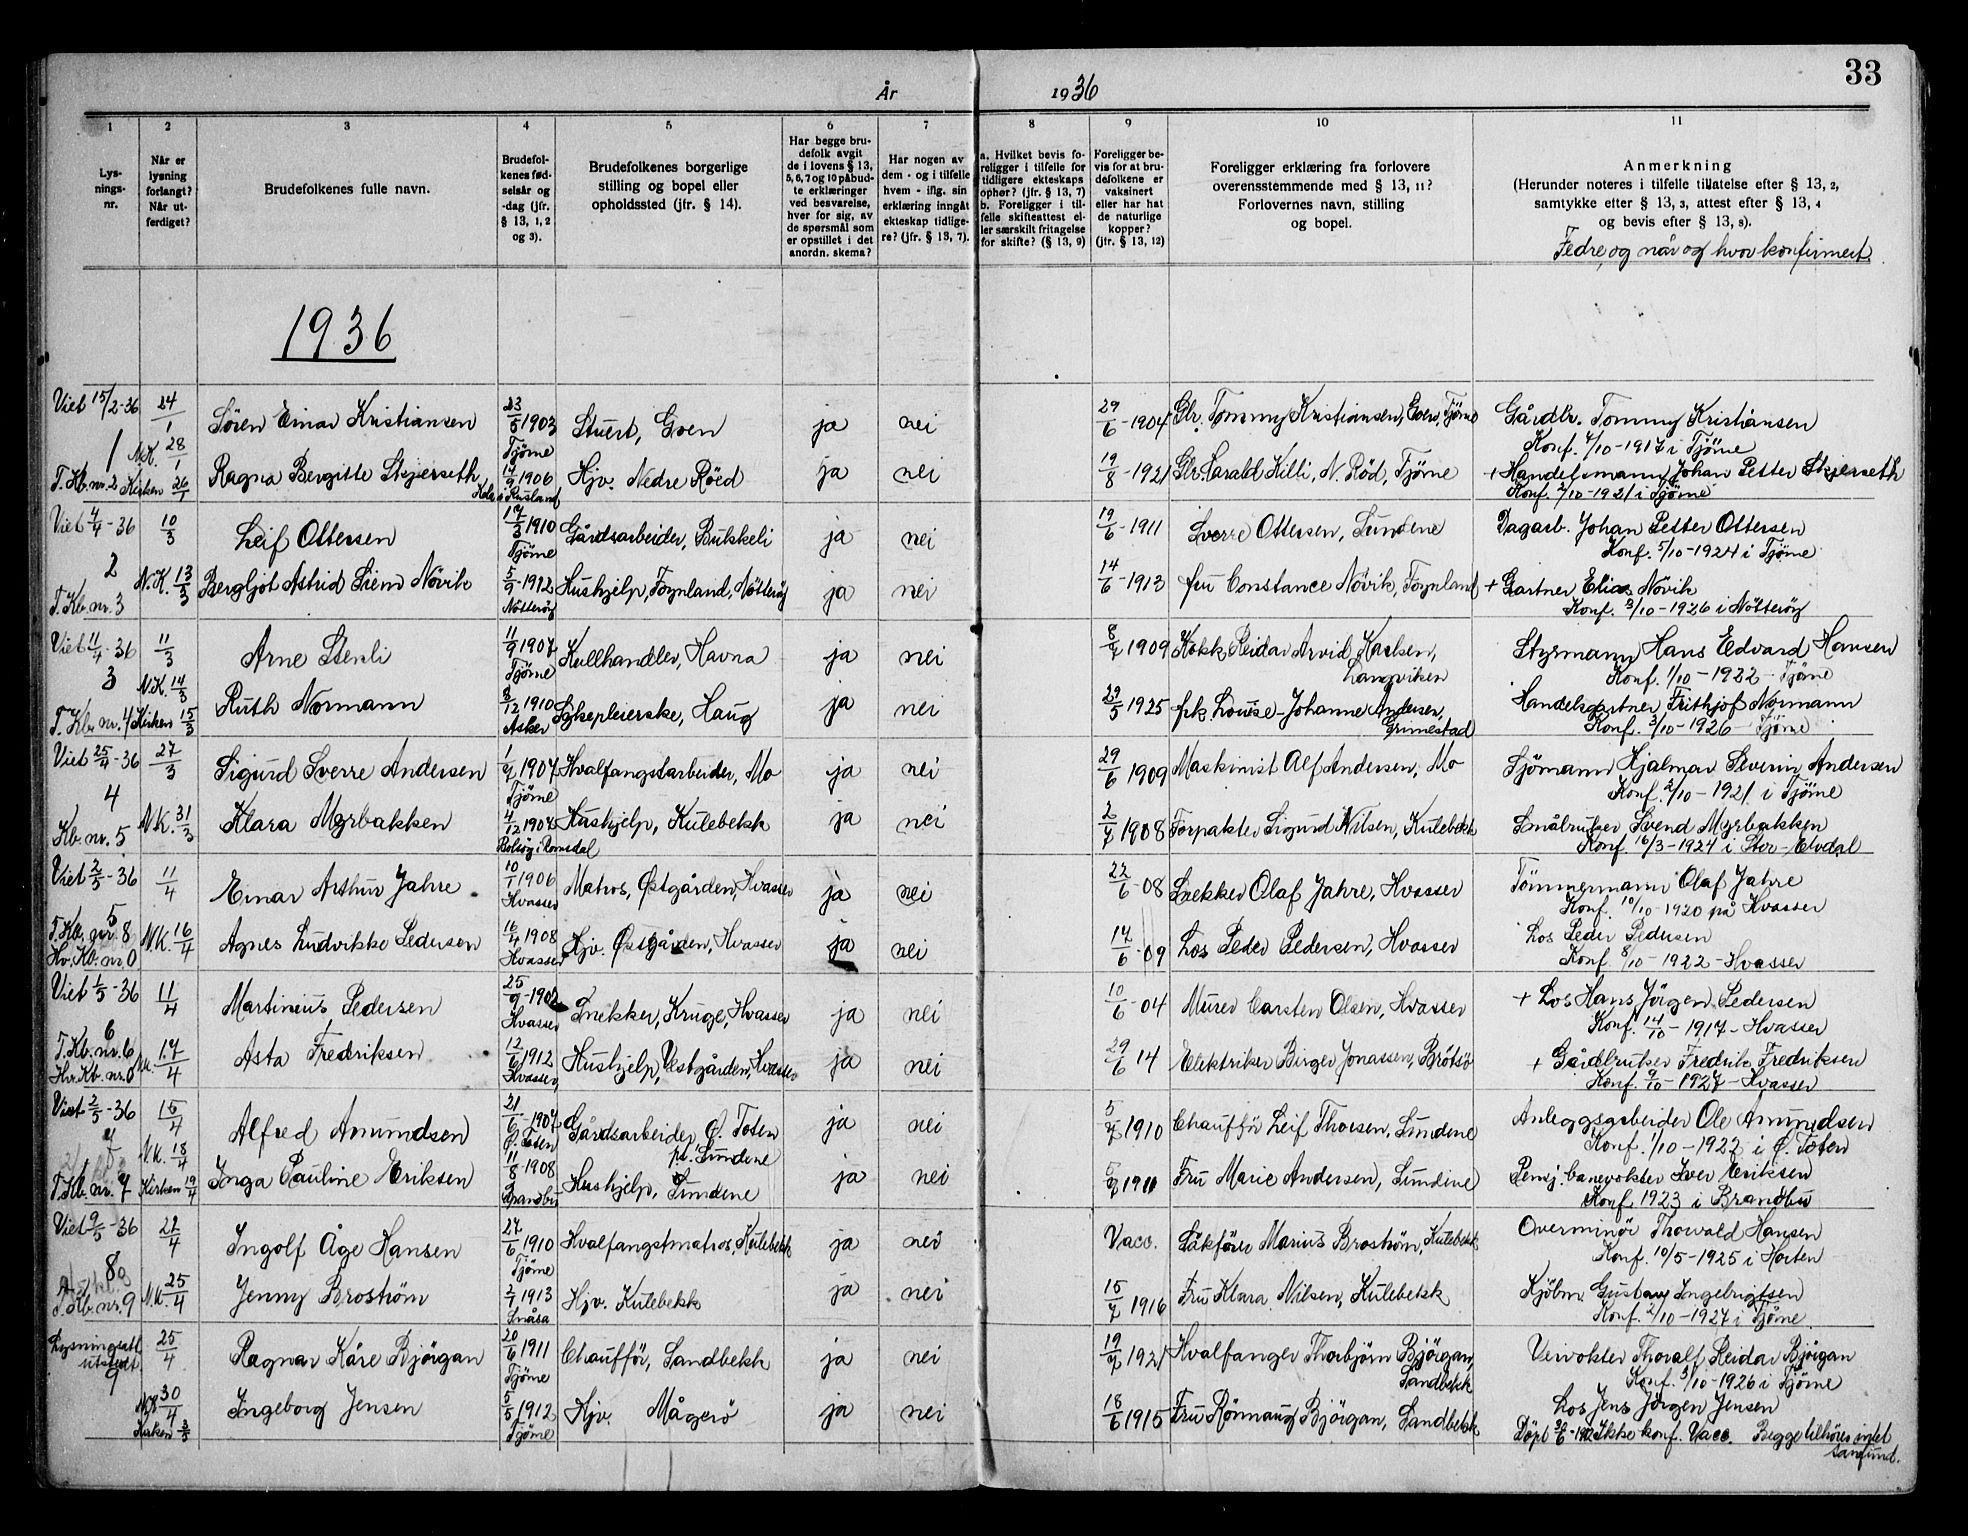 33
År 1936
1 2 3 4 5 6 7 8 9 10 11
Lys-
nings-
nr.
Når er
lysning
forlangt?
Når ut-
ferdiget?
Brudefolkenes fulle navn.
Brudefol-
kenes fød-
selsår og
-dag (jfr.
§ 13, 1, 2
og 3).
Brudefolkenes borgerlige
stilling og bopel eller
opholdssted (jfr. § 14).
Har begge bru-
defolk avgit
de i lovens § 13,
5, 6, 7 og 10 påbud-
te erklæringer
ved besvarelse,
hver for sig, av
de spørsmål som
er opstillet i det
anordn. skema?
Har nogen av
dem - og i tilfelle
hvem - iflg. sin
erklæring inngått
ekteskap tidlige-
re? (jfr. § 13, 7).
a. Hvilket bevis fo-
religger i tilfelle for
tidligere ekteskaps
ophør? (jfr. § 13, 7)
b. Foreligger i til-
felle skifteattest el-
ler særskilt fritagelse
for skifte? (§ 13, 9)
Foreligger be-
vis for at bru-
defolkene er
vaksinert
eller har hat
de naturlige
kopper?
(jfr. § 13, 12)
Foreligger erklæring fra forlovere
overensstemmende med § 13, 11?
Forlovernes navn, stilling
og bopel.
Anmerkning
(Herunder noteres i tilfelle tillatelse efter § 13, 2,
samtykke efter § 13, 3, attest efter § 13, 4
og bevis efter § 13, 8).
Fedre, og når og hvor konfirmert.
1936
Viet 15/2-36 24/1 Søren Einar Kristiansen 23/5 1903 Tjøme Stuert, Goen ja nei 29/6-1904 Gbr. Tommy Kristiansen, Goen, Tjøme Gårdbr. Tommy Kristiansen
Konf. 7/10-1917 i Tjøme
1 N.K. 28/1
T. Kb. nr. 2 Kirken 26/1 Ragna Bergitte Skjerseth 14/9 1906 Kola i Rusland Hjv. Nedre Röed ja nei 19/8-1921 Gbr. Harald Killi, N. Rød, Tjøme + Handelsmann Johan Petter Skjerseth
Konf. 2/10-1921 i Tjøme
Viet 4/4-36 10/3 Leif Ottersen 17/3 1910 Tjøme Gårdsarbeider, Bukkeli ja nei 19/6-1911 Sverre Ottersen, Sundene Dagarb. Johan Petter Ottersen
Konf. 5/10-1924 i Tjøme
2 N.K. 13/3
T. Kb. nr. 3 Bergljot Astrid Siem Növik 5/9 1912 Nötteröy Hushjelp, Föynland, Nötteröy ja nei 14/6-1913 fru Constance Növik, Föynland + Gartner Elias Növik
Konf. 3/10-1926 i Nötteröy
Viet 11/4-36 11/3 Arne Stenli 11/9 1907 Tjøme Kullhandler, Havna ja nei 8/7 1909 Kokk Reidar Arvid Karlsen,
Langviken Styrmann Hans Edvard Hansen
Konf. 1/10-1922 - Tjøme
3 N.K. 14/3
T. Kb. nr. 4 Kirken 15/3 Ruth Normann 8/12 1910 Asker Sykepleierske, Haug ja nei 29/5 1925 frk Louise-Johanne Andersen,
Grimestad Handelsgartner Frithjof Normann
Konf. 3/10-1926 Tjøme
Viet 25/4-36 27/3 Sigurd Sverre Andersen 1/7 1907 Tjøme Hvalfangstarbeider, Mo ja nei 29/6 1909 Maskinist Alf Andersen, Mo Sjömann Hjalmar Severin Andersen
Konf. 2/10-1921 i Tjöme
4 N.K. 31/3
Kb. nr. 5 Klara Myrbakken 4/12 1904 Bolsöy i Romsdal Hushjelp, Kulebekk ja nei 2/7 1908 Forpakter Sigurd Nilsen, Kulebekk Småbruker Svend Myrbakken
Konf. 16/3-1924 i Stor-Elvdal
Viet 2/5-36 11/4 Einar Arthur Jahre 10/1 1906 Hvasser Matros, Østgården, Hvasser ja nei 22/6-08 Snekker Olaf Jahre, Hvasser Tömmermann Olaf Jahre
Konf. 10/10-1920 på Hvasser
5
T. Kb. nr. 8
Hv. Kb. nr. 0 N.K. 16/4 Agnes Ludvikke Pedersen 16/4 1908 Hvasser Hjv. Østgården, Hvasser ja nei 17/6-09 Los Peder Pedersen, Hvasser Los Peder Pedersen
Konf 8/10-1922 - Hvasser
Viet 1/5-36 11/4 Martinius Pedersen 25/9-1902 Hvasser Snekker, Kruge, Hvasser ja nei 10/6-04 Murer Carsten Olsen, Hvasser + Los Hans Jörgen Pedersen
Konf. 14/10-1917 - Hvasser
6
T. Kb. nr. 6
Hv. Kb. nr. 0 N.K. 17/4 Asta Fredriksen 12/6 1912 Hvasser, Hushjelp, Vestgården, Hvasser ja nei 29/6 14 Elektriker Birger Jonassen, Bröttsö + Gårdbruker Fredrik Fredriksen
Konf. 9/10-1927 - Hvasser
Viet 2/5-36 15/4 Alfred Amundsen 21/6-1907 Ø. Toten Gårdsarbeider, Ø. Toten
pt. Sundene ja nei 5/7 1910 Chaufför Leif Thorsen, Sundene Anleggsarbeider Ole Amundsen
Konf. 1/10-1922 i Ø. Toten
7 N.K. 18/4
T. Kb. nr. 7 Kirken 19/4 Inga Pauline Eriksen 11/8-1908 Brandbu Hushjelp, Sundene ja nei 5/7 1911 Fru Marie Andersen, Sundene Pensj. banevokter Iver Eriksen
Konf. 1923 i Brandbu
Viet 9/5-36 22/4 Ingolf Åge Hansen 27/6 1910 Tjøme Hvalfangstmatros, Kulebekk ja nei Vacc. Båkförer Marius Broström, Kulebekk Overminör Thorvald Hansen
Konf. 10/5-1925 i Horten
8 N.K. 25/4
T. Kb. nr. 9 Jenny Broström 2/1 1913 Snåsa Hjv. Kulebekk ja nei 15/7 1916 Fru Klara Nilsen, Kulebekk Kjöbm. Gustav Ingebrigtsen
Konf. 2/10-1927 i Tjøme
Lysningsatt.
utstedt 25/4 Ragnar Kåre Björgan 20/6 1911 Tjøme Chauffför, Sandbekk ja nei 19/7 1921 Hvalfanger Thorbjörn Björgan,
Sandbekk Veivokter Thoralf Reidar Björgan
Konf. 3/10-1926 i Tjöme
9 N.K. 30/4
Kirken 3/5 Ingeborg Jensen 5/5 1912 Tjøme Hjv. Mågerö ja nei 18/6 1915 Fru Rönnaug Björgan, Sandbekk Los Jens Jörgen Jensen
Döpt 30/6-1912 Ikke konf. Vacc. Begge tilhörer intet
samfund.